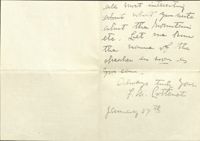 are most interesting
about what you write
about the mountains
etc. Let me know
the name of the
speaker as soon as
you can.
Always truly yours
January 27th